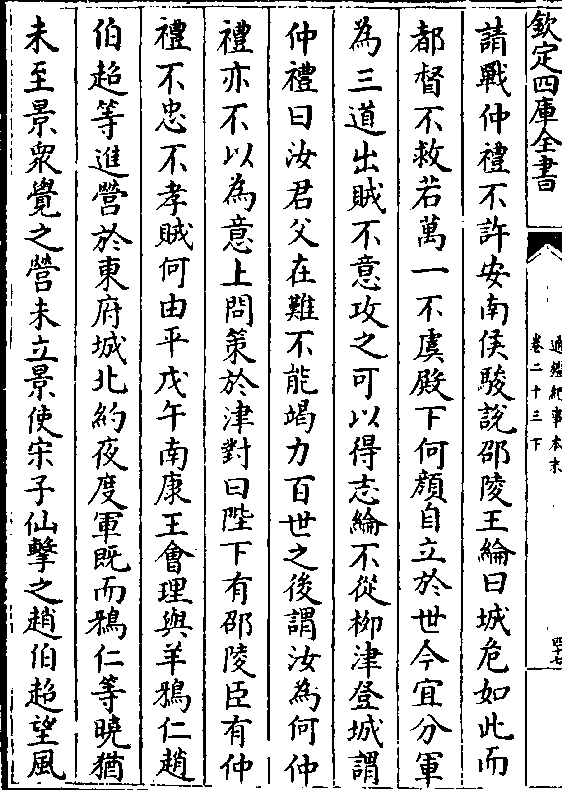 欽定四庫全書
通鑑紀事本末
卷二十三下
四十七
請戰仲禮不許安南侯駿說邵陵王綸曰城危如此而
都督不救若萬一不虞殿下何顏自立於世今宜分軍
為三道出賊不意攻之可以得志綸不從柳津登城謂
仲禮曰汝君父在難不能竭力百世之後謂汝為何仲
禮亦不以為意上問策於津對曰陛下有邵陵臣有仲
禮不忠不孝賊何由平戊午南康王會理與羊鴉仁趙
伯超等進營於東府城北約夜度軍既而鴉仁等曉猶
未至景衆覺之營未立景使宋子仙擊之趙伯超望風